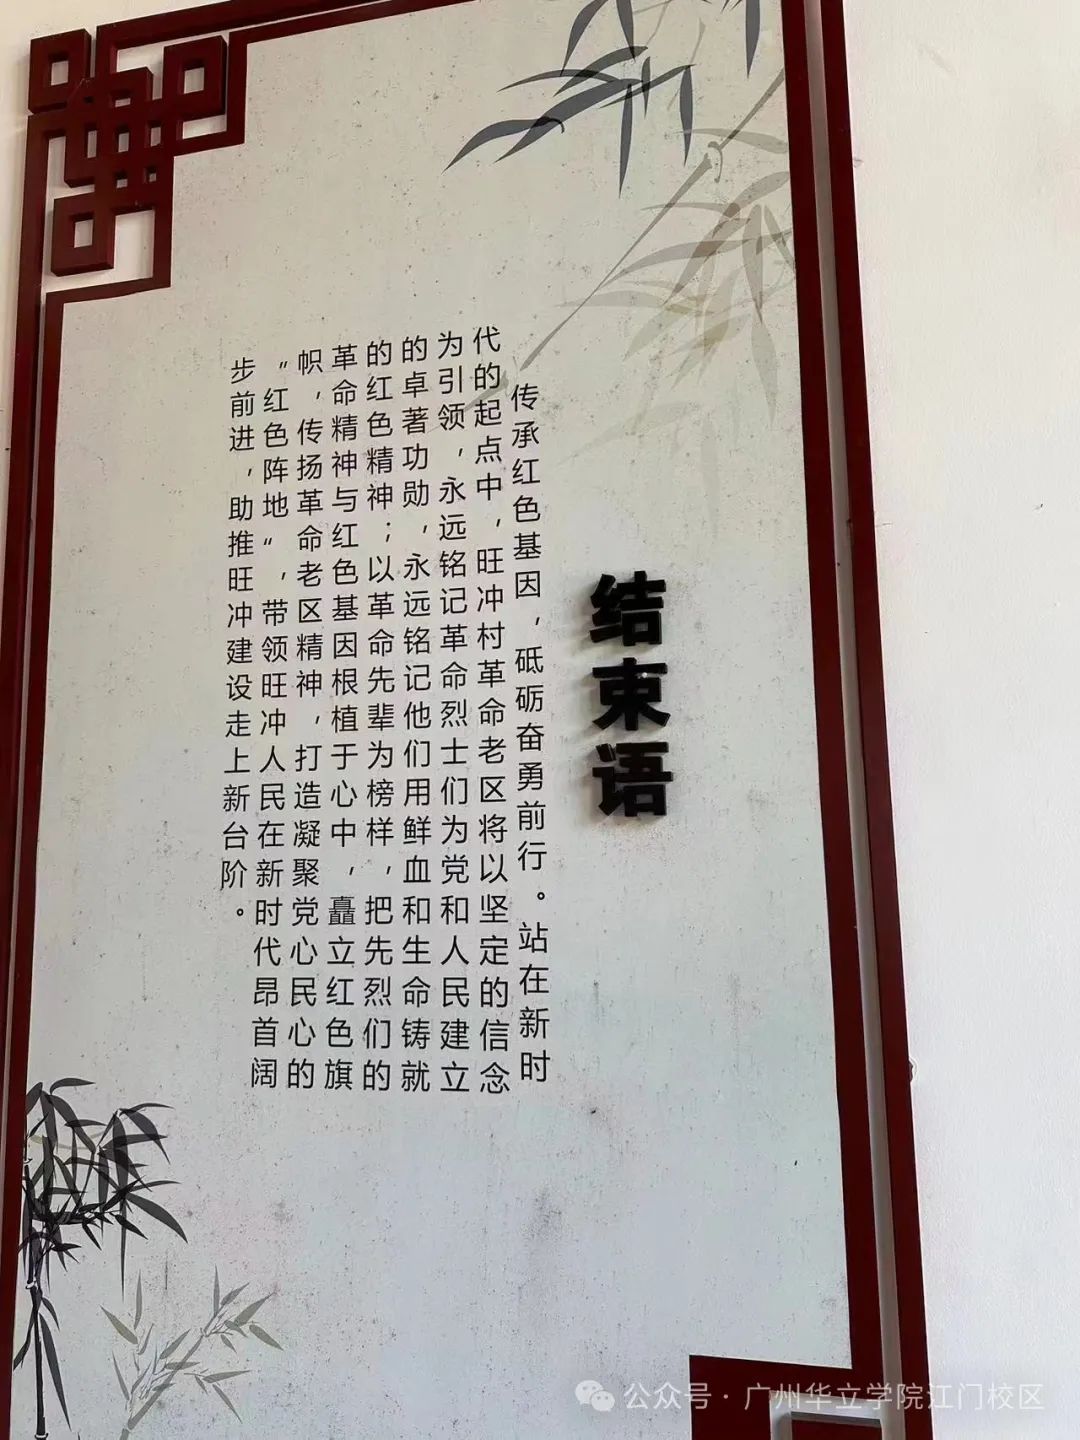 结束语
传承红色基因，砥砺奋勇前行。站在新时
代的起点中，旺冲村革命老区将以坚定的信念
为引领，永远铭记革命烈士们为党和人民建立
的卓著功勋，永远铭记他们用鲜血和生命铸就
的红色精神；以革命先辈为榜样，把先烈们的
革命精神与红色基因根植于心中，矗立红色旗
帜，传扬革命老区精神，打造凝聚党心民心的
“红色阵地”，带领旺冲人民在新时代昂首阔
步前进，助推旺冲建设走上新台阶。
公众号·广州华立学院江门校区